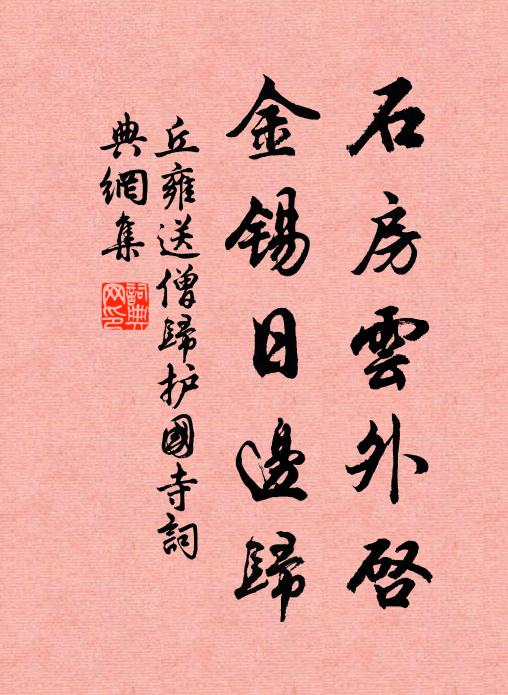 石房雲外啓
金錫日邊歸
丘雍送僧歸护國寺詞
典網集
詞典网印